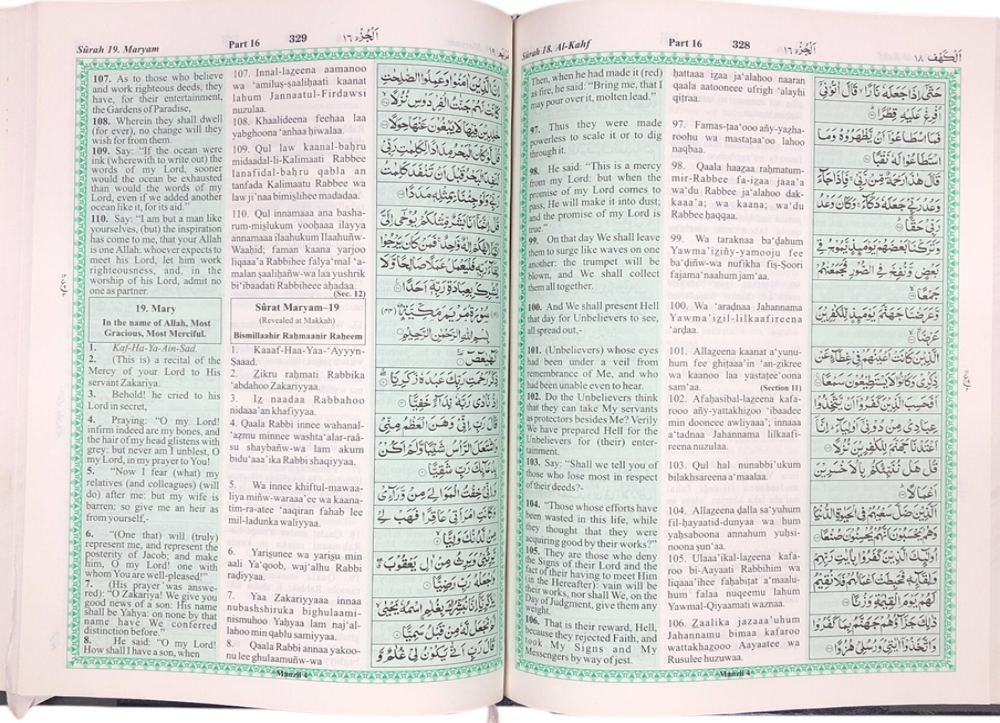 Sûrah 18. Al-Kahf
Part 16
328
اَلْجُزْء ١٦
اَلْكَهْف ١٨
Then, when he had made it (red)
as fire, he said: “Bring me, that I
may pour over it, molten lead.”
97. Thus they were made
powerless to scale it or to dig
through it.
98. He said: “This is a mercy
from my Lord: but when the
promise of my Lord comes to
pass, He will make it into dust;
and the promise of my Lord is
true.”
99. On that day We shall leave
them to surge like waves on one
another: the trumpet will be
blown, and We shall collect
them all together.
100. And We shall present Hell
that day for Unbelievers to see,
all spread out,-
101. (Unbelievers) whose eyes
had been under a veil from
remembrance of Me, and who
had been unable even to hear.
102. Do the Unbelievers think
that they can take My servants
as protectors besides Me? Verily
We have prepared Hell for the
Unbelievers for (their) enter-
tainment.
103. Say: “Shall we tell you of
those who lose most in respect
of their deeds?-
104. “Those whose efforts have
been wasted in this life, while
they thought that they were
acquiring good by their works?”
105. They are those who deny
the Signs of their Lord and the
fact of their having to meet Him
(in the Hereafter): vain will be
their works, nor shall We, on the
Day of Judgment, give them any
weight.
106. That is their reward, Hell,
because they rejected Faith, and
took My Signs and My
Messengers by way of jest.
ḥattaaa izaa ja’alahoo naaran
qaala aatooneee ufrigh ‘alayhi
qiṭraa.
97. Famas-ṭaa‘ooo añy-yazha-
roohu wa mastaṭaa‘oo lahoo
naqbaa.
98. Qaala haazaa raḥmatum-
mir-Rabbee fa-izaa jaaa’a
wa‘du Rabbee ja‘alahoo dak-
kaaa’a; wa kaana; wa‘du
Rabbee ḥaqqaa.
99. Wa taraknaa ba‘ḍahum
Yawma’iziñy-yamooju fee
ba‘ḍiñw-wa nufikha fiṣ-Ṣoori
fajama‘naahum jam‘aa.
100. Wa ‘araḍnaa Jahannama
Yawma’izil-lilkaafireena
‘arḍaa.
101. Allazeena kaanat a‘yunu-
hum fee ghiṭaaa’in ‘an-zikree
wa kaanoo laa yastaṭee‘oona
sam‘aa.
(Section 11)
102. Afaḥasibal-lazeena kafa-
rooo añy-yattakhizoo ‘ibaadee
min dooneee awliyaaa’; innaaa
a‘tadnaa Jahannama lilkaafi-
reena nuzulaa.
103. Qul hal nunabbi’ukum
bilakhsareena a‘maalaa.
104. Allazeena ḍalla sa‘yuhum
fil-ḥayaatid-dunyaa wa hum
yaḥsaboona annahum yuḥsi-
noona ṣun‘aa.
105. Ulaaa’ikal-lazeena kafa-
roo bi-Aayaati Rabbihim wa
liqaaa’ihee faḥabiṭat a‘maalu-
hum falaa nuqeemu lahum
Yawmal-Qiyaamati waznaa.
106. Zaalika jazaaa’uhum
Jahannamu bimaa kafaroo
wattakhazooo Aayaatee wa
Rusulee huzuwaa.
حَتّٰۤى اِذَا جَعَلَهٗ نَارًا ۙ قَالَ اٰتُوْنِيْۤ
اُفْرِغْ عَلَيْهِ قِطْرًا
فَمَا اسْطَاعُوْۤا اَنْ يَّظْهَرُوْهُ وَمَا
اسْتَطَاعُوْا لَهٗ نَقْبًا
قَالَ هٰذَا رَحْمَةٌ مِّنْ رَّبِّيْ ۚ فَاِذَا جَآءَ
وَعْدُ رَبِّيْ جَعَلَهٗ دَكَّآءَ ۚ وَكَانَ وَعْدُ
رَبِّيْ حَقًّا
وَتَرَكْنَا بَعْضَهُمْ يَوْمَئِذٍ يَّمُوْجُ فِيْ
بَعْضٍ وَّنُفِخَ فِي الصُّوْرِ فَجَمَعْنٰهُمْ
جَمْعًا
وَّعَرَضْنَا جَهَنَّمَ يَوْمَئِذٍ لِّلْكٰفِرِيْنَ
عَرْضًا
الَّذِيْنَ كَانَتْ اَعْيُنُهُمْ فِيْ غِطَآءٍ عَنْ
ذِكْرِيْ وَكَانُوْا لَا يَسْتَطِيْعُوْنَ سَمْعًا
اَفَحَسِبَ الَّذِيْنَ كَفَرُوْۤا اَنْ يَّتَّخِذُوْا
عِبَادِيْ مِنْ دُوْنِيْۤ اَوْلِيَآءَ ۚ اِنَّاۤ
اَعْتَدْنَا جَهَنَّمَ لِلْكٰفِرِيْنَ نُزُلًا
قُلْ هَلْ نُنَبِّئُكُمْ بِالْاَخْسَرِيْنَ
اَعْمَالًا
اَلَّذِيْنَ ضَلَّ سَعْيُهُمْ فِي الْحَيٰوةِ الدُّنْيَا
وَهُمْ يَحْسَبُوْنَ اَنَّهُمْ يُحْسِنُوْنَ صُنْعًا
اُولٰٓئِكَ الَّذِيْنَ كَفَرُوْا بِاٰيٰتِ رَبِّهِمْ
وَلِقَآئِهٖ فَحَبِطَتْ اَعْمَالُهُمْ فَلَا نُقِيْمُ
لَهُمْ يَوْمَ الْقِيٰمَةِ وَزْنًا
ذٰلِكَ جَزَآؤُهُمْ جَهَنَّمُ بِمَا كَفَرُوْا
وَاتَّخَذُوْۤا اٰيٰتِيْ وَرُسُلِيْ هُزُوًا
Manzil 4
Sûrah 19. Maryam
Part 16
329
اَلْجُزْء ١٦
مَرْيَم ١٩
107. As to those who believe
and work righteous deeds, they
have, for their entertainment,
the Gardens of Paradise,
108. Wherein they shall dwell
(for ever), no change will they
wish for from them.
109. Say: “If the ocean were
ink (wherewith to write out) the
words of my Lord, sooner
would the ocean be exhausted
than would the words of my
Lord, even if we added another
ocean like it, for its aid.”
110. Say: “I am but a man like
yourselves, (but) the inspiration
has come to me, that your Allah
is one Allah: whoever expects to
meet his Lord, let him work
righteousness, and, in the
worship of his Lord, admit no
one as partner.
19. Mary
In the name of Allah, Most
Gracious, Most Merciful.
1. Kaf-Ha-Ya-Ain-Sad.
2. (This is) a recital of the
Mercy of your Lord to His
servant Zakariya.
3. Behold! he cried to his
Lord in secret,
4. Praying: “O my Lord!
infirm indeed are my bones, and
the hair of my head glistens with
grey: but never am I unblest, O
my Lord, in my prayer to You!
5. “Now I fear (what) my
relatives (and colleagues) (will
do) after me: but my wife is
barren: so give me an heir as
from yourself,-
6. “(One that) will (truly)
represent me, and represent the
posterity of Jacob; and make
him, O my Lord! one with
whom You are well-pleased!”
7. (His prayer was answe-
red): “O Zakariya! We give you
good news of a son: His name
shall be Yahya: on none by that
name have We conferred
distinction before.”
8. He said: “O my Lord!
How shall I have a son, when
107. Innal-lazeena aamanoo
wa ‘amiluṣ-ṣaaliḥaati kaanat
lahum Jannaatul-Firdawsi
nuzulaa.
108. Khaalideena feehaa laa
yabghoona ‘anhaa ḥiwalaa.
109. Qul law kaanal-baḥru
midaadal-li-Kalimaati Rabbee
lanafidal-baḥru qabla an
tanfada Kalimaatu Rabbee wa
law ji’naa bimiṡlihee madadaa.
110. Qul innamaaa ana basha-
rum-miṡlukum yooḥaaa ilayya
annamaaa ilaahukum Ilaahuñw-
Waaḥid; faman kaana yarjoo
liqaaa’a Rabbihee falya‘mal ‘a-
malan ṣaaliḥañw-wa laa yushrik
bi‘ibaadati Rabbiheee aḥadaa.
(Sec. 12)
Sûrat Maryam–19
(Revealed at Makkah)
Bismillaahir Raḥmaanir Raḥeem
1. Kaaaf-Haa-Yaa-‘Ayyyn-
Ṣaaad.
2. Zikru raḥmati Rabbika
‘abdahoo Zakariyyaa.
3. Iz naadaa Rabbahoo
nidaaa’an khafiyyaa.
4. Qaala Rabbi innee wahanal-
‘azmu minnee washta‘alar-raâ-
su shaybañw-wa lam akum
bidu‘aaa’ika Rabbi shaqiyyaa.
5. Wa innee khiftul-mawaa-
liya miñw-waraaa’ee wa kaana-
tim-ra-atee ‘aaqiran fahab lee
mil-ladunka waliyyaa.
6. Yariṡunee wa yariṡu min
aali Ya‘qoob, waj‘alhu Rabbi
radiyyaa.
7. Yaa Zakariyyaaa innaa
nubashshiruka bighulaamii-
nismuhoo Yaḥyaa lam naj‘al-
lahoo min qablu samiyyaa.
8. Qaala Rabbi annaa yakoo-
nu lee ghulaamuñw-wa
اِنَّ الَّذِيْنَ اٰمَنُوْا وَعَمِلُوا الصّٰلِحٰتِ
كَانَتْ لَهُمْ جَنّٰتُ الْفِرْدَوْسِ نُزُلًا
خٰلِدِيْنَ فِيْهَا لَا يَبْغُوْنَ عَنْهَا حِوَلًا
قُلْ لَّوْ كَانَ الْبَحْرُ مِدَادًا لِّكَلِمٰتِ رَبِّيْ
لَنَفِدَ الْبَحْرُ قَبْلَ اَنْ تَنْفَدَ كَلِمٰتُ
رَبِّيْ وَلَوْ جِئْنَا بِمِثْلِهٖ مَدَدًا
قُلْ اِنَّمَاۤ اَنَا بَشَرٌ مِّثْلُكُمْ يُوْحٰۤى اِلَيَّ
اَنَّمَاۤ اِلٰهُكُمْ اِلٰهٌ وَّاحِدٌ ۚ فَمَنْ كَانَ يَرْجُوْا
لِقَآءَ رَبِّهٖ فَلْيَعْمَلْ عَمَلًا صَالِحًا وَّلَا
يُشْرِكْ بِعِبَادَةِ رَبِّهٖۤ اَحَدًا
سُوْرَةُ مَرْيَمَ مَكِّيَّةٌ (٤٤)
بِسْمِ اللّٰهِ الرَّحْمٰنِ الرَّحِيْمِ
كٓهٰيٰعٓصٓ
ذِكْرُ رَحْمَتِ رَبِّكَ عَبْدَهٗ زَكَرِيَّا
اِذْ نَادٰى رَبَّهٗ نِدَآءً خَفِيًّا
قَالَ رَبِّ اِنِّيْ وَهَنَ الْعَظْمُ مِنِّيْ
وَاشْتَعَلَ الرَّاْسُ شَيْبًا وَّلَمْ اَكُنْۢ
بِدُعَآئِكَ رَبِّ شَقِيًّا
وَاِنِّيْ خِفْتُ الْمَوَالِيَ مِنْ وَّرَآءِيْ
وَكَانَتِ امْرَاَتِيْ عَاقِرًا فَهَبْ لِيْ
مِنْ لَّدُنْكَ وَلِيًّا
يَّرِثُنِيْ وَيَرِثُ مِنْ اٰلِ يَعْقُوْبَ
وَاجْعَلْهُ رَبِّ رَضِيًّا
يٰزَكَرِيَّاۤ اِنَّا نُبَشِّرُكَ بِغُلٰمِ ۨاسْمُهٗ يَحْيٰى
لَمْ نَجْعَلْ لَّهٗ مِنْ قَبْلُ سَمِيًّا
قَالَ رَبِّ اَنّٰى يَكُوْنُ لِيْ غُلٰمٌ وَّ
Manzil 4